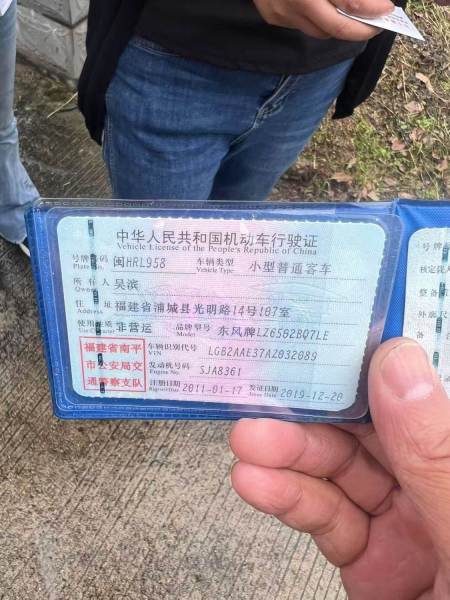 中华人民共和国机动车行驶证
Vehicle License of the People's Republic of China
号牌号码 闽HRL958 车辆类型 小型普通客车
Plate No. Vehicle Type
所有人 吴滨
Owner
住址 福建省浦城县光明路14号107室
Address
使用性质 非营运 品牌型号 东风牌LZ6502BQ7LE
Use Character Model
福建省南平
市公安局交
通警察支队
车辆识别代号 LGB2AAE37AZ032089
VIN
发动机号码 SJA8361
Engine No.
注册日期 2011-01-17 发证日期 2019-12-20
Register Date Issue Date
号牌
核定载人
整备
外廓尺
备